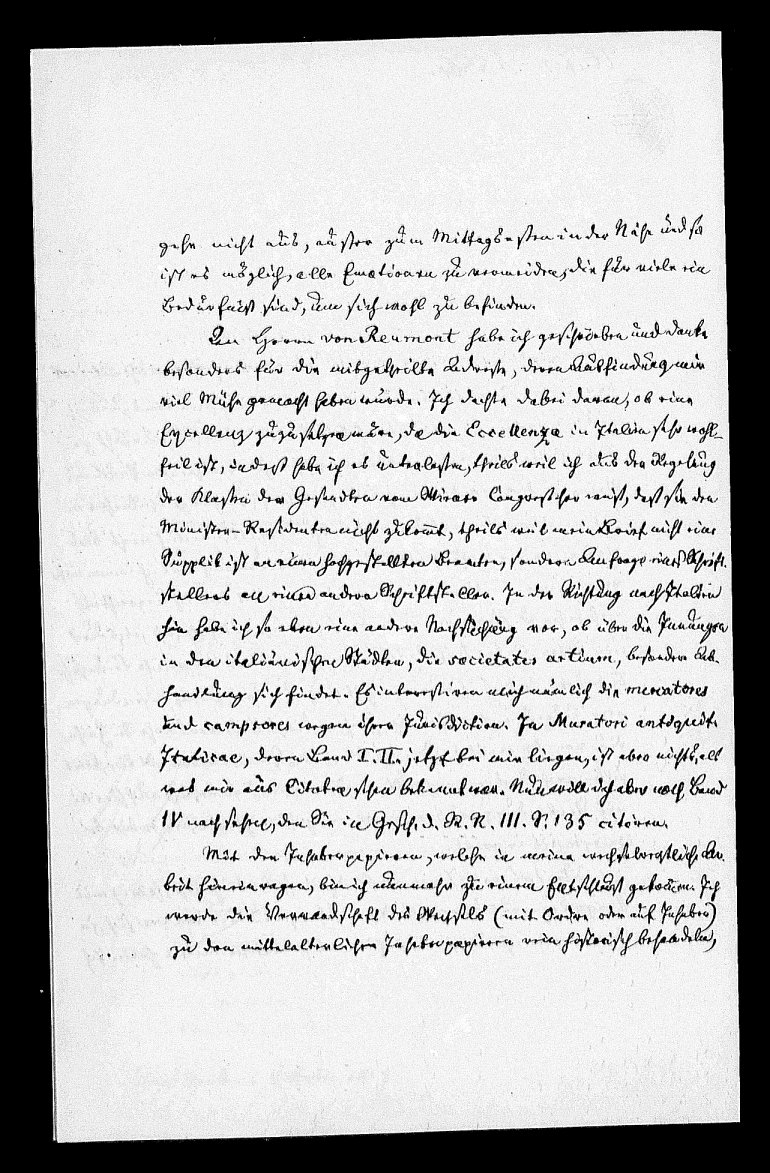 gehe nicht aus, außer zum Mittagsessen in der Nähe und so
ist es möglich, alle Emotionen zu vermeiden, die für viele ein
Bedürfniß sind, um sich wohl zu befinden.
An Herrn von Reumont habe ich geschrieben und danke
besonders für die mitgetheilte Adresse, deren Auffindung mir
viel Mühe gemacht haben würde. Ich dachte dabei daran, ob eine
Excellenz zuzusetzen wäre, da die Eccellenza in Italien sehr wohl-
feil ist, indeß habe ich es unterlassen, theils weil ich aus der Regelung
der Klassen der Gesandten vom Wiener Congreß her weiß, daß sie den
Minister-Residenten nicht zukommt, theils weil mein Brief nicht eine
Supplik ist an einen hochgestellten Beamten, sondern Anfrage eines Schrift-
stellers an einen andern Schriftsteller. In der Richtung nach Italien
hin habe ich so eben eine andere Nachsuchung vor, ob über die Innungen
in den italiänischen Städten, die societates artium, besondere Ab-
handlung sich findet. Es interessiren mich nämlich die mercatores
und campsores wegen ihrer Jurisdiction. In Muratori antiquit.
Italicae, deren Band I. II. jetzt bei mir liegen, ist aber nichts, als
was mir aus Citaten schon bekannt war. Nun will ich aber noch Band
IV nachsehen, den Sie in Gesch. d. R. R. III. S. 135 citiren.
Mit den Inhaberpapieren, welche in meine wechselrechtliche Ar-
beit hineinragen, bin ich nunmehr zu einem Entschluß gekommen. Ich
werde die Verwandschaft des Wechsels (mit Ordre oder auf Inhaber)
zu den mittelalterlichen Inhaberpapieren rein historisch behandeln,